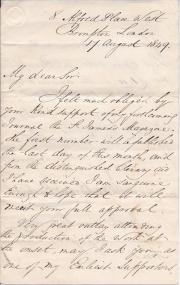 8 Alfred Place West
Brompton London
17 August 1849.
My dear Sir
I felt much obliged by
your kind support of my forthcoming
journal the St. James's Magazine
the first number will be published
the last day of this month, and
from the distinguished literary aid
I have received I am sanguine
enough to hope that it will
meet your full approval.
Very great outlay attending
the production of the Work at
the onset, may I ask you, as
one of my Earliest Supporters,